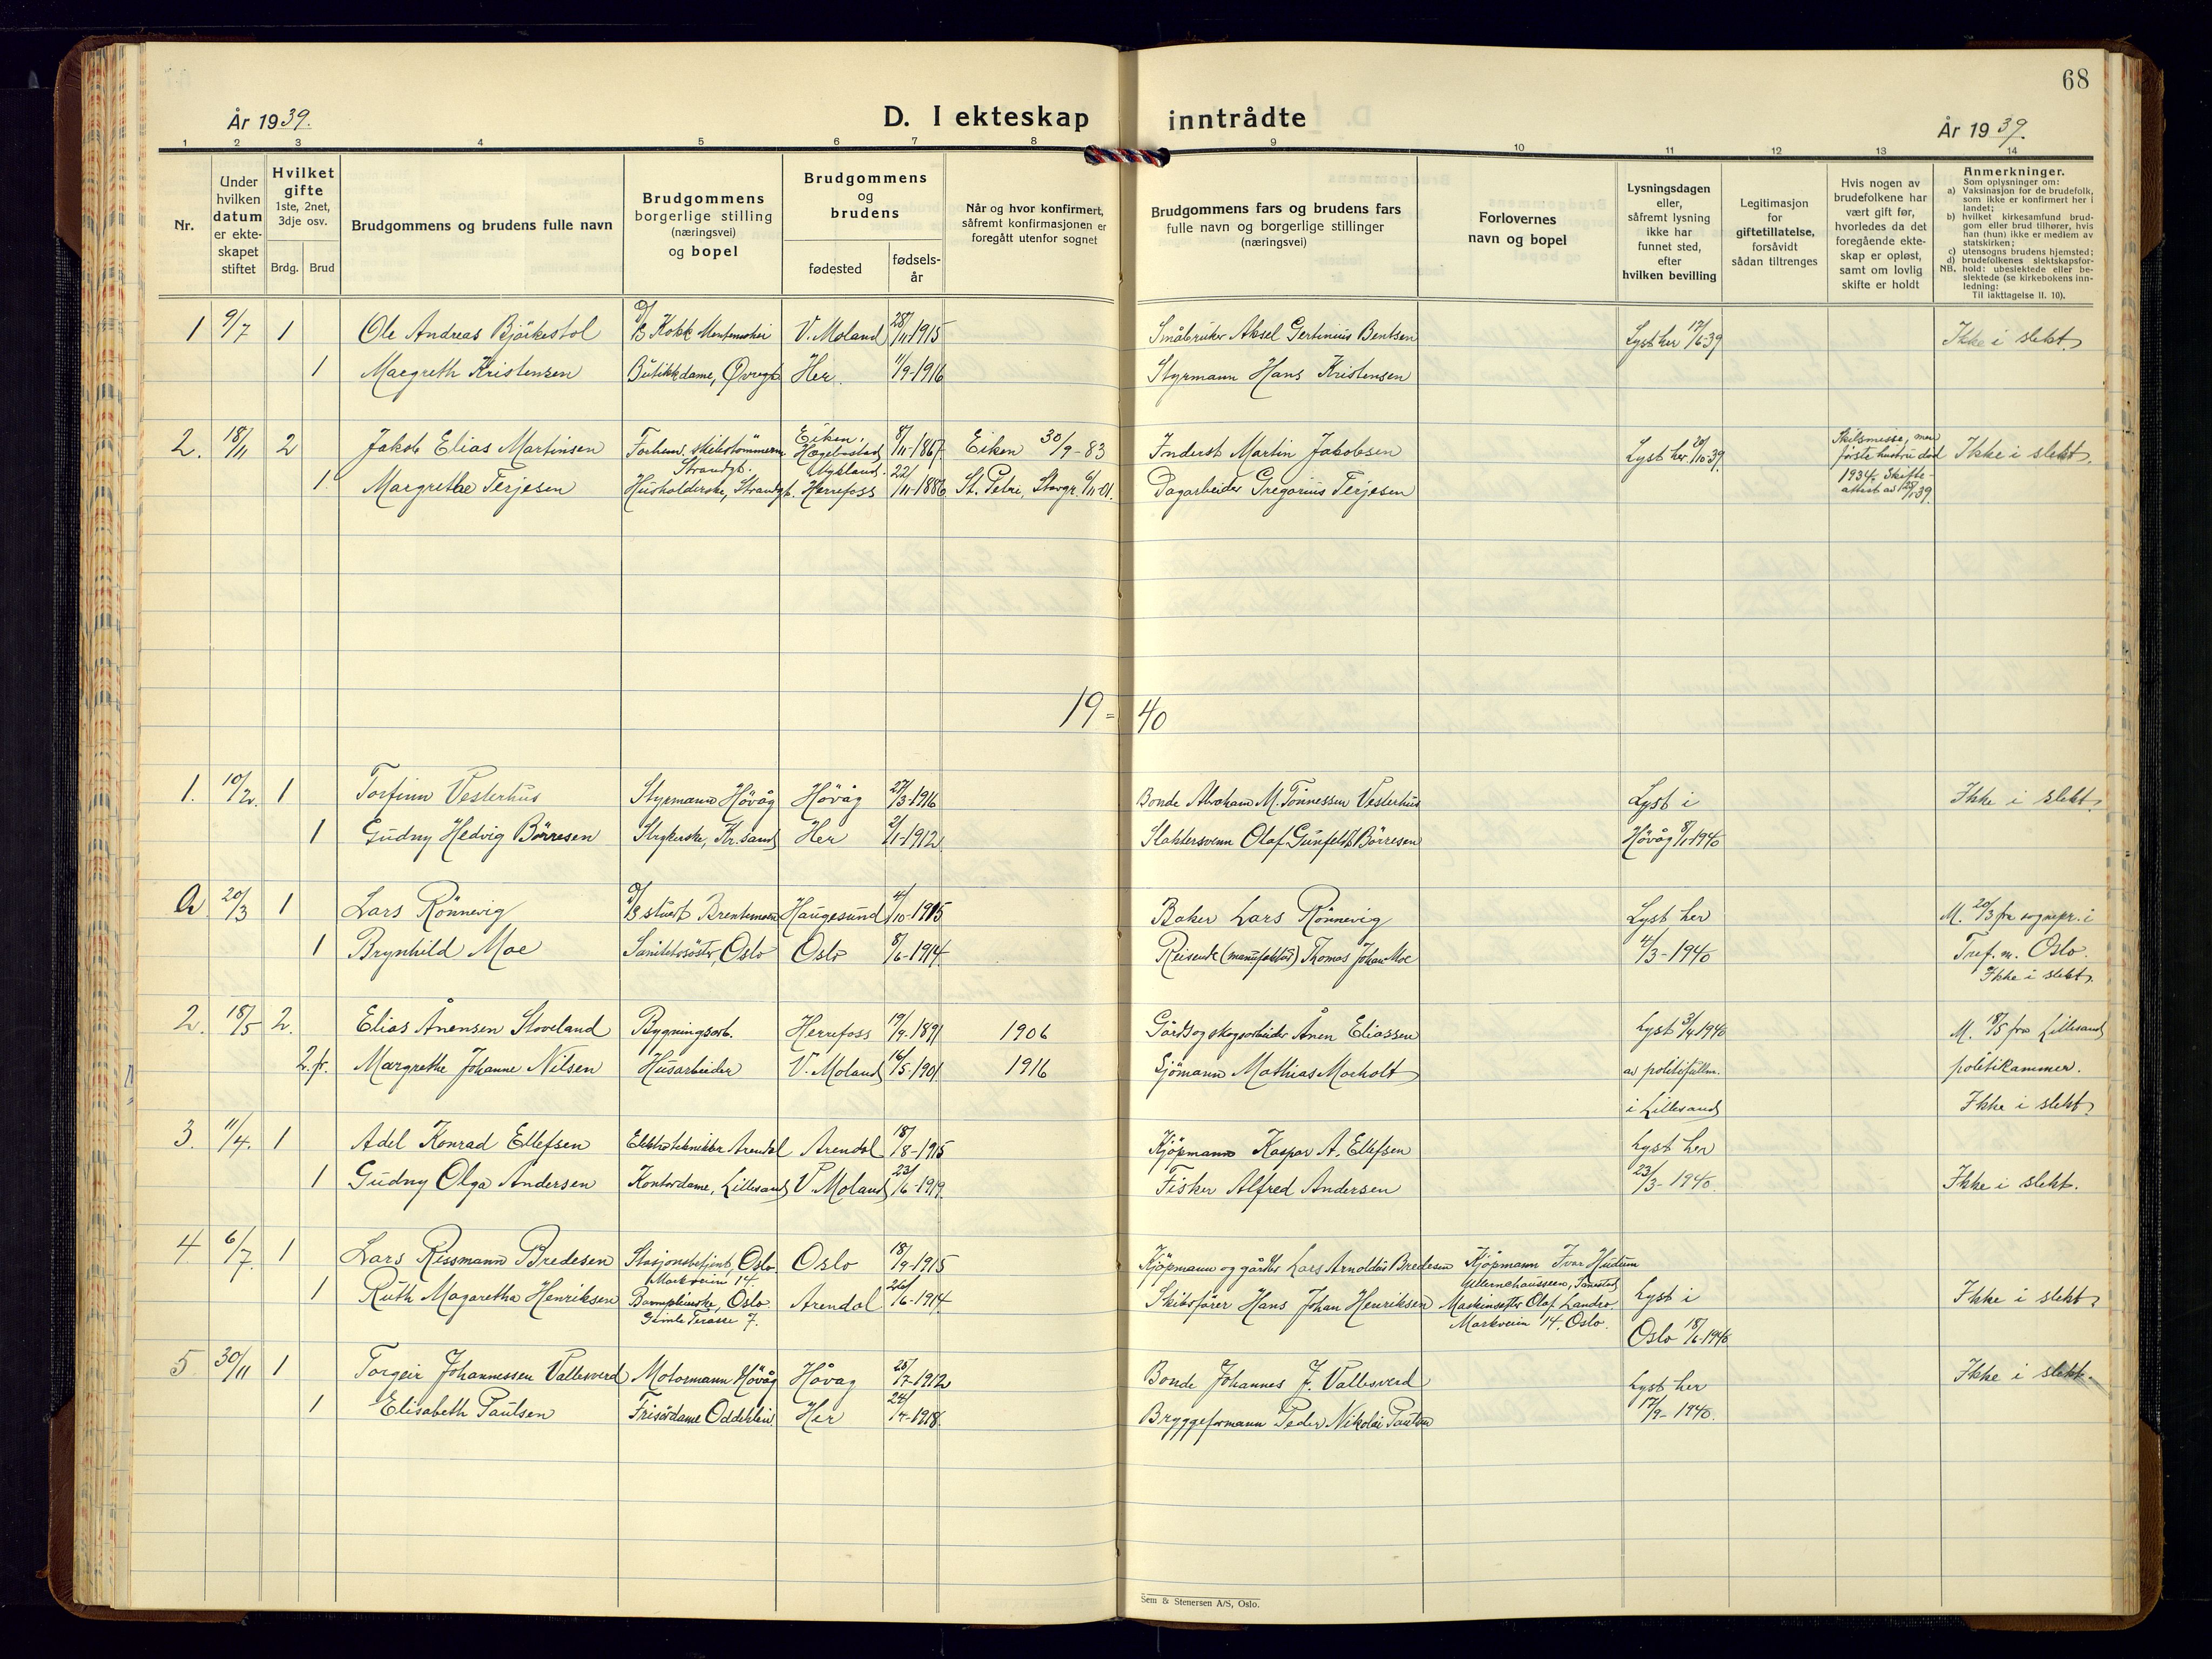 68
År 1939.
D. I ekteskap inntrådte
År 1939.
1 2 3 4 5 6 7 8 9 10 11 12 13 14
Nr.
Under hvilken datum er ekte-skapet stiftet
Hvilket gifte 1ste, 2net, 3dje osv.
Brdg. Brud
Brudgommens og brudens fulle navn
Brudgommens borgerlige stilling (næringsvei) og bopel
Brudgommens og brudens
fødested
fødsels-år
Når og hvor konfirmert, såfremt konfirmasjonen er foregått utenfor sognet
Brudgommens fars og brudens fars fulle navn og borgerlige stillinger (næringsvei)
Forlovernes navn og bopel
Lysningsdagen eller, såfremt lysning ikke har funnet sted, efter hvilken bevilling
Legitimasjon for giftetillatelse, forsåvidt sådan tiltrenges
Hvis nogen av brudefolkene har vært gift før, hvorledes da det foregående ekte-skap er opløst, samt om lovlig skifte er holdt
Anmerkninger.
Som oplysninger om:
a) Vaksinasjon for de brudefolk, som ikke er konfirmert her i landet;
b) hvilket kirkesamfund brud-gom eller brud tilhører, hvis han (hun) ikke er medlem av statskirken;
c) utensogns brudens hjemsted;
d) brudefolkenes slektskapsfor-
NB. hold: ubeslektede eller be-slektede (se kirkebokens inn-ledning:
Til iakttagelse II. 10).
1 9/7 1 Ole Andreas Bjørkestol Kokk V. Moland 28/11-1915 Småbruker Aksel Gertinius Bentsen Lyst her 17/6-39 Ikke i slekt.
1 Maegreth Kristensen Butikkdame, Her. 11/9-1916 Styrmann Hans Kristensen
2. 18/11 2 Jakob Elias Martinsen Forhenv. skibstömmerm. Strandgt. Eiken, Hægebostad 8/11-1867 Eiken 30/9-83 Inderst Martin Jakobsen Lyst her 20/10-39 Skilsmisse, men første hustru død Ikke i slekt.
1 Margrethe Terjesen Husholderske, Strandgt. Herrefoss 22/11-1886 St. Petri, Dagarbeider Gregorius Terjesen 1934. Skifte-attest av
19-40
1. 10/2. 1 Torfinn Vesterhus Styrmann Hövåg Hövåg 27/3-1916 Bonde Abraham M. Tönnessen Vesterhus Lyst i Ikke i slekt.
1 Gudny Hedvig Börresen Strykerske, Kr.sand Her 2/1-1912 Slaktersvenn Olaf Gunfeldt Börresen Hövåg 8/1-1940
a 20/3 1 Lars Rönnevig Haugesund 4/10-1915 Baker Lars Rönnevig Lyst her M. 20/3 fra sognepr. i
1 Brynhild Moe Oslo Oslo 8/6-1914 Reisende (manufaktur) Thomas Johan Moe 4/3-1940 Tref. m. Oslo.
Ikke i slekt.
2. 18/5 2. Elias Ånensen Stoveland Bygningsarb. Herrefoss 19/9-1891 1906 Gårds og skogsarbeider Ånen Eliassen Lyst 3/4 1940 M. 18/5 fra Lillesand
2. fr. Margrethe Johanne Nilsen Husarbeider V. Moland 16/5-1901 1916 Sjömann Mathias Moeholt av politifullm. politikammer.
i Lillesand Ikke i slekt.
3. 11/4. 1 Adel Konrad Ellefsen Elektrotekniker Arendal Arendal 18/8-1915 Kjöpmann Kaspar A. Ellefsen Lyst her
1 Gudny Olga Andersen Kontordame, Lillesand V. Moland 23/6-1919. Fisker Alfred Andersen 23/3-1940. Ikke i slekt.
4 6/7. 1 Lars Rissmann Bredesen Stasjonsbetjent, Oslo. Oslo 18/9-1915 Kjöpmann og Lars Arnoldus Bredesen Kjöpmann Ivar Hudum
Markveien 14.
1 Ruth Magaretha Henriksen Oslo. Arendal 26/6-1914 Skibsförer Hans Johan Henriksen Olaf Landro Lyst i Ikke i slekt.
Gimle Terasse 7. Markveien 14, Oslo. Oslo 18/6-1940.
5 30/11 1 Torgeir Johannessen Vallesverd Motormann Hövåg Håvag 28/7-1912 Bonde Johannes J. Vallesverd Lyst her Ikke i slekt.
1 Elisabeth Paulsen Frisördame Her 24/4-1918. Bryggeformann Peder Nikolai Paulsen 17/9-1940.
Sem & Stenersen A/S, Oslo.